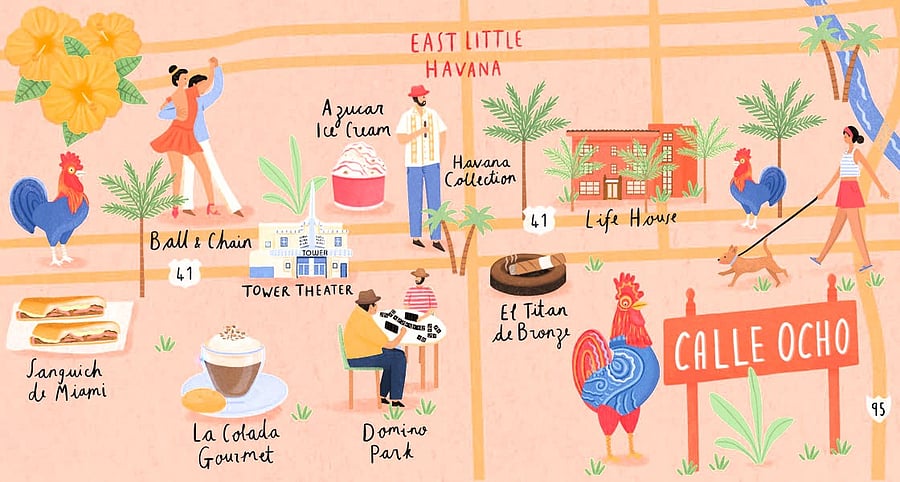 EAST LITTLE
HAVANA
Azucar
Ice Cream
Havana
Collection
41
Life House
Ball & Chain
TOWER
41
TOWER THEATER
El Titan
de Bronze
CALLE OCHO
Sanguich
de Miami
95
La Colada
Gourmet
Domino
Park